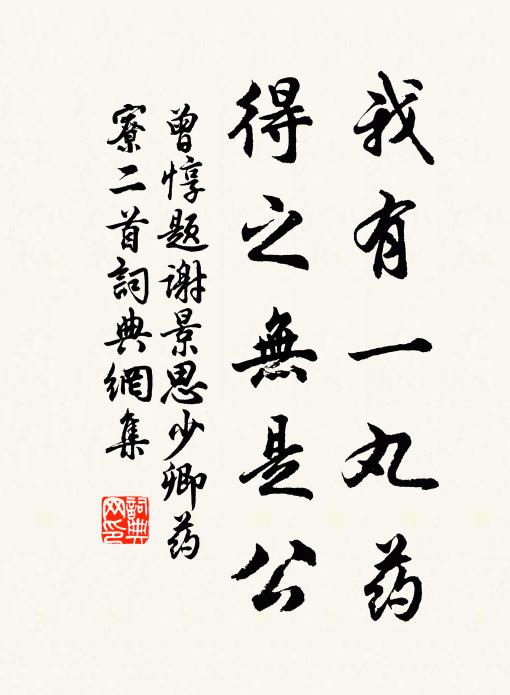 我有一丸药
得之無是公
曾惇题谢景思少卿药
寮二首詞典網集
詞典网印